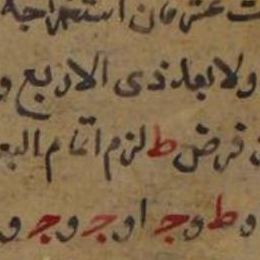 عشر فان استخراجه
ولا بعد ذى الاربع و
فرض ط لزم اتمام البعد
و ط و ج ا و ج و ج و